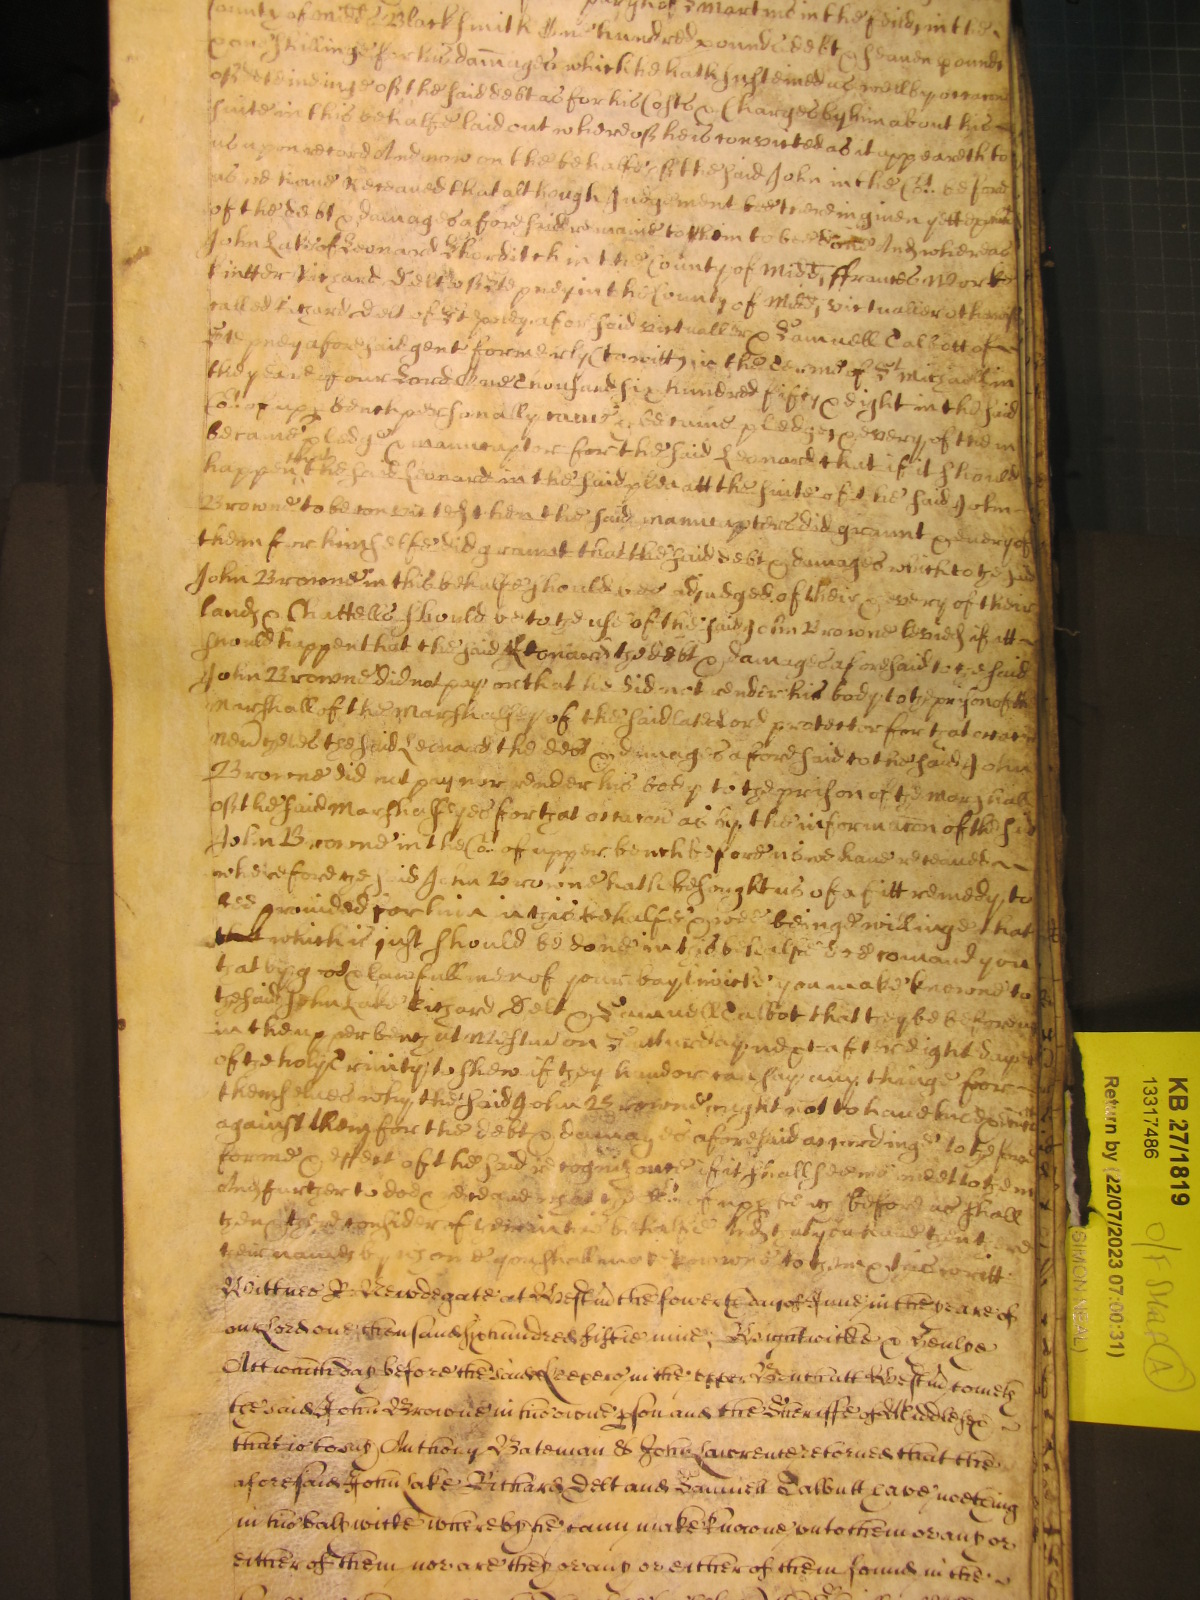 parish of St Martins in the feilds, in the
County of Midd Blacksmith One hundred pounds debt & seaven pounds
& one shillinge for his damages which he hath susteined as well by occacon
of deteineinge of the said debt as for his Costs & Charges by him about his
suite in this behalfe laid out whereof he is convicted as it appeareth to
us upon record And now on the behalfe of the said John in the Co:t before
us we have Receaved that although Judgement bee therein given yett execucon
of the debt & damages aforesaid remaine to them to bee And whereas
John Lake of Leonard Shorditch in the County of Midd, ffrances Worke
knitter Richard Delt of Stepney in the County of Midd, victualler otherwise
called Richard Delt of Stepney aforesaid victualler & Samuell Talbott of
Stepney aforesaid gent formerly (to witt) in the Terme of St Michaell in
the yeare of our Lord One Thousand six hundred fifty & eight in the said
Co:t of upp bench personally came & became pledges & every of them
became pledge & manucaptor for the said Leonard that if it should
happen that the said Leonard in the said plea att the suite of the said John
Browne to be convicted then the said manucaptors did graunt & every of
them for himselfe did graunt that the said debt & damages which to the said
John Browne in this behalfe should bee adjudged of their & every of their
lands & Chattells should be to the use of the said John Browne levied if itt
should happen that the said Leonard the debt & damages aforesaid to the said
John Browne did not pay or that he did not render his body to the prison of the
Marshall of the Marshalsey of the said late Lord protector for that occacon
neverthelesse the said Leonard the debt & damages aforesaid to the said John
Browne did not pay nor render his body to the prison of the Marshall
of the said Marshalseyes for that occacon as by the informacon of the said
John Browne in the Co:t of upper bench before us we have receaved
wherefore the said John Browne hath besought us of a fitt remedy to
bee provided for him in this behalfe & wee beinge willinge that
which is just should be done in this behalfe doe comand you
that by good & lawfull men of your baylwicke you make knowne to
the said John Lake Richard Delt & Samuell Talbot that they be before us
in the upper bench at Westm on Saturday next after eight dayes
of the holy Trinity to shew if they have or can say any thinge for
themselves why the said John Browne ought not to have his execucon
against them for the debt & damages aforesaid accordinge to the force
forme & effect of the said recognizance if it shall seeme meet to them
And further to doe & receave what the Co:t of upp bench before us shall
then & there consider of them in this behalfe And that you have then there
their names by whom you shall make knowne to them & this writt
Wittnes R: Newdegate at Westm the fowerth day of June in the yeare of
our Lord one thousand six hundred fiftie nine; Wightwicke &
Att which day before the said Keepers in the upper Bench att Westm cometh
the said John Browne in his owne pson and the Sheriffe of Middlesex
that is to say Anthony Bateman & John Lawrence retorned that the
aforesaid John Lake Richard Delt and Samuell Talbutt have nothing
in his balywicke whereby he cann make knowne unto them or any or
either of them nor are they or any or either of them found in the
KB 27/1819
13317486
Return by (22/07/2023 07:00:31)
(SIMON NEAL)
O/F Staff A